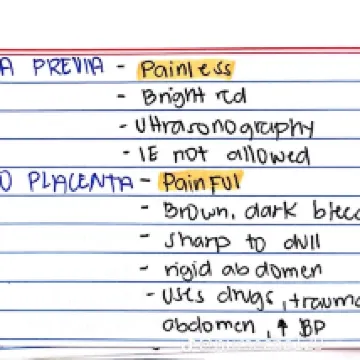 A PREVIA - Painless
- Bright red
- Ultrasonography
- IE not allowed
O PLACENTA - PainFUl
- Brown, dark bleed
- sharp to dull
- rigid abdomen
- uses drugs, trauma
abdomen, ↑ BP